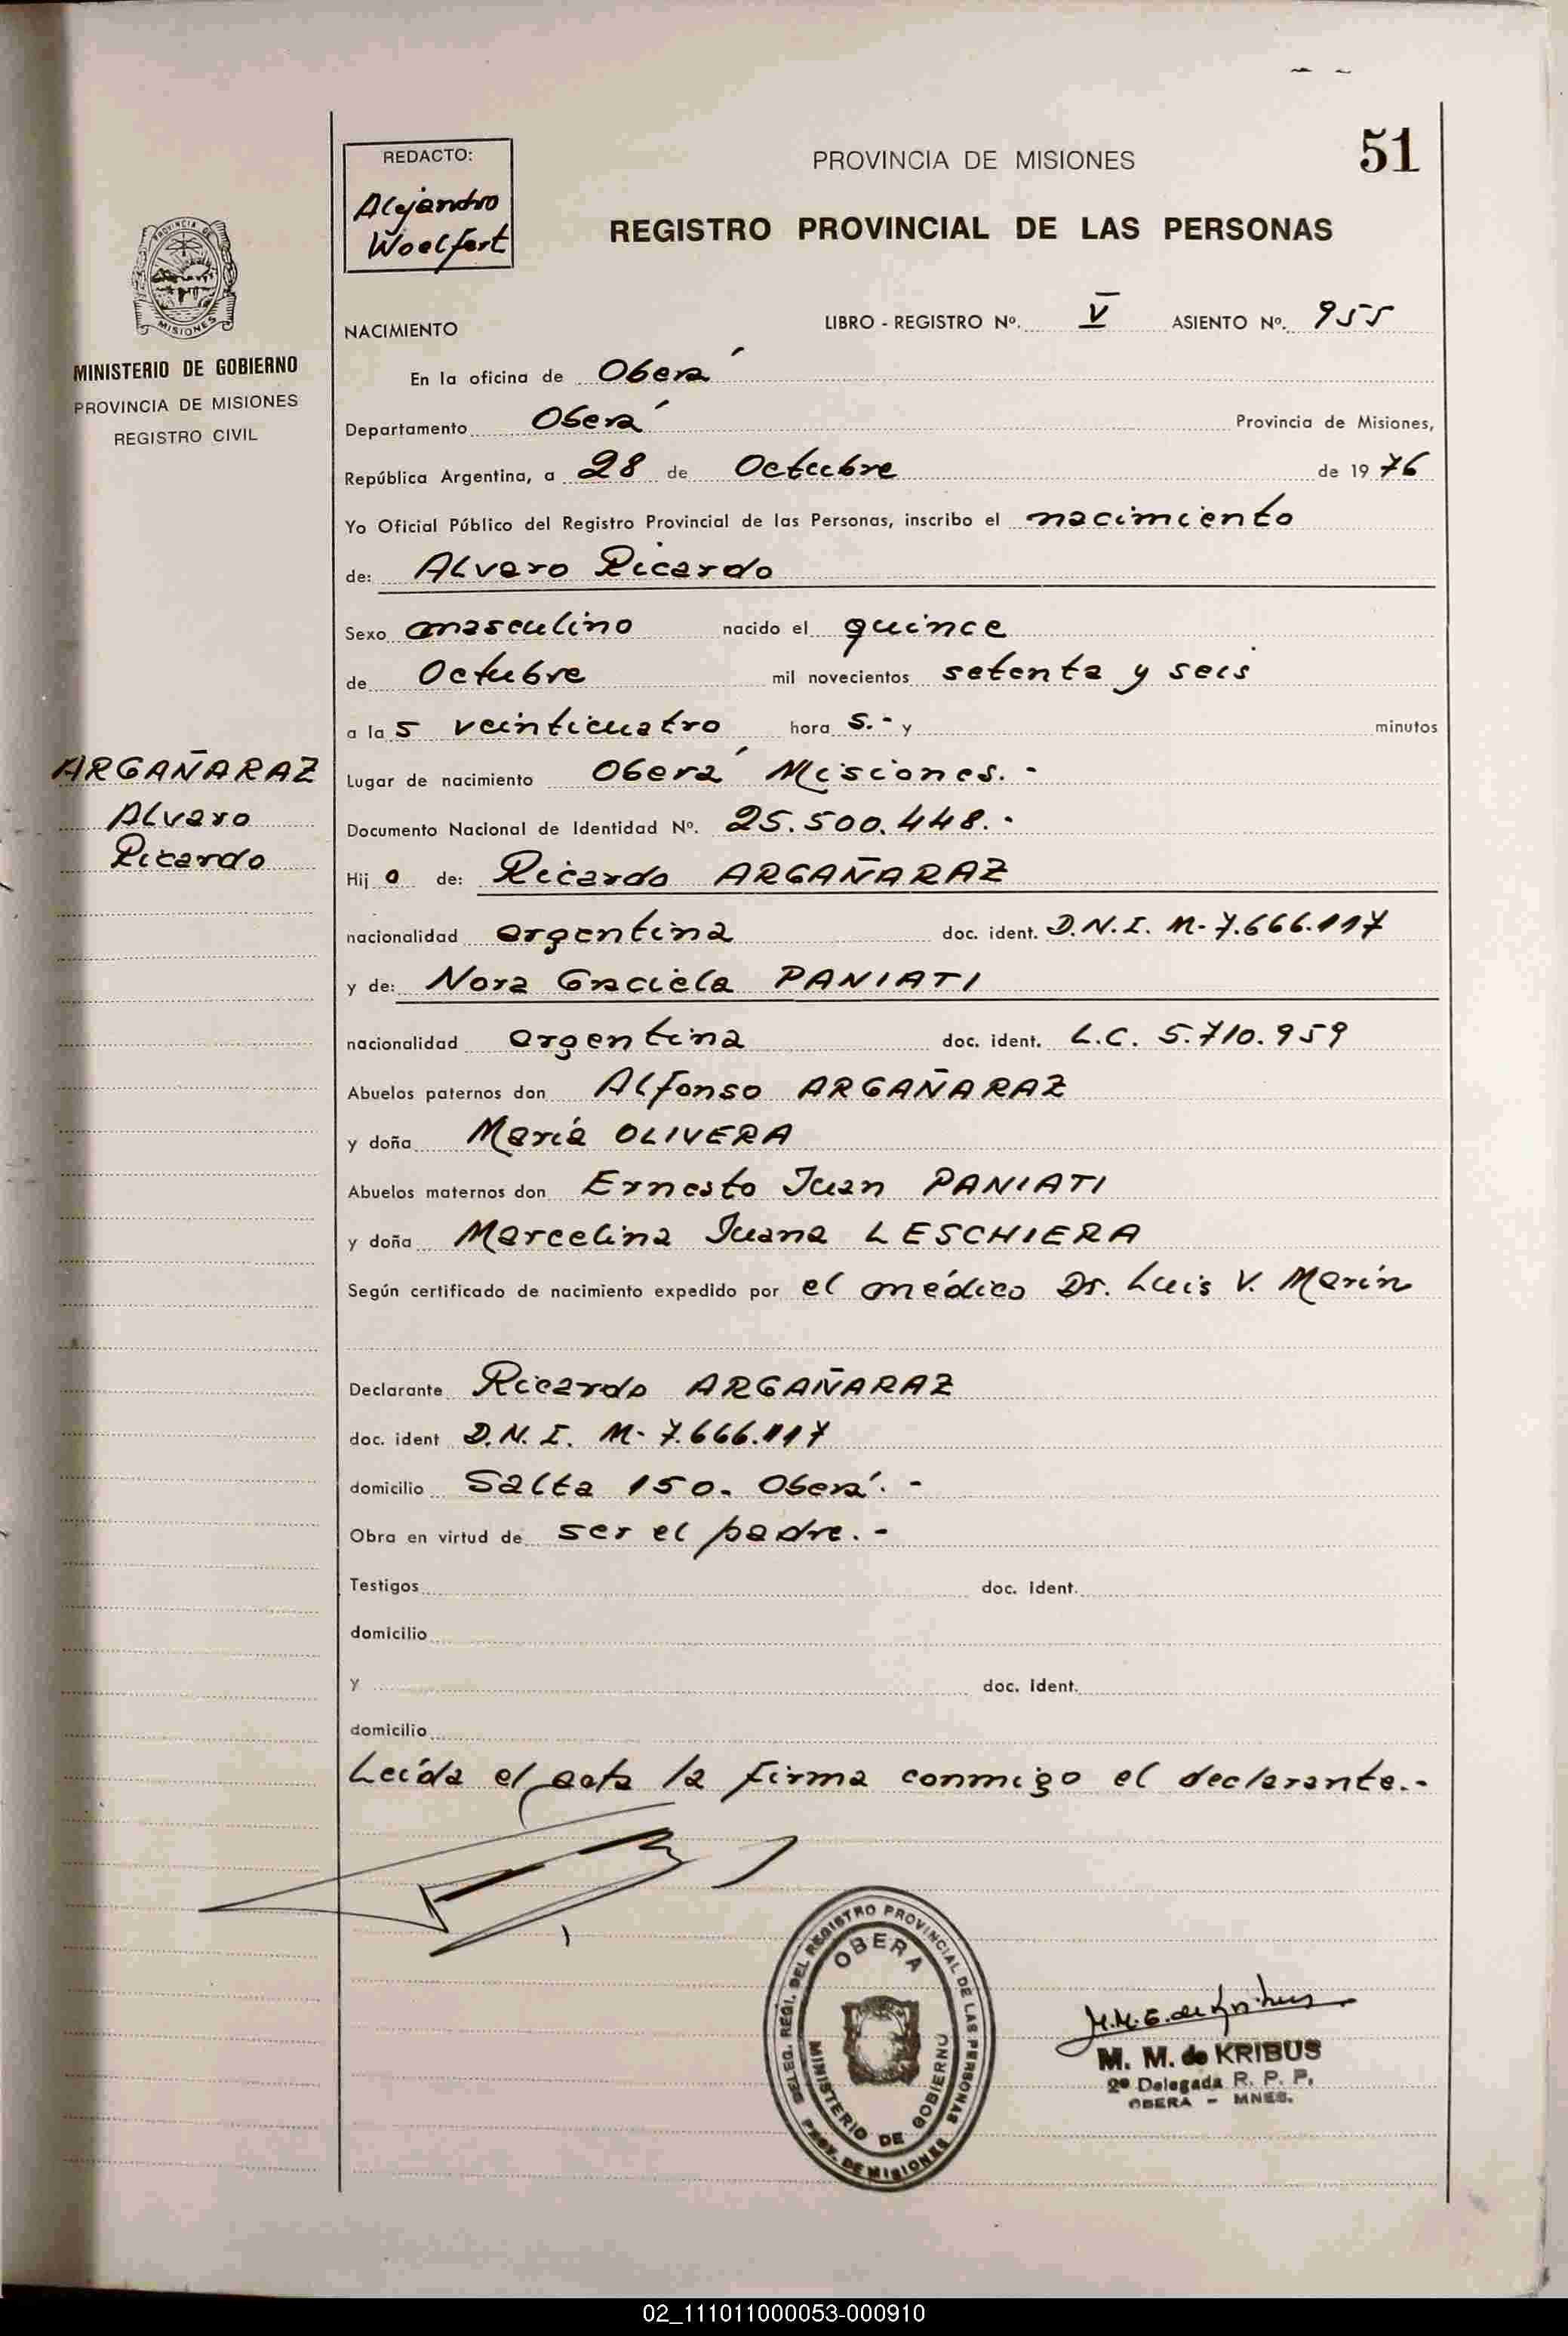 REDACTO:
Alejandro
Woelfert
PROVINCIA DE MISIONES
51
REGISTRO PROVINCIAL DE LAS PERSONAS
PROVINCIA DE
MISIONES
MINISTERIO DE GOBIERNO
PROVINCIA DE MISIONES
REGISTRO CIVIL
NACIMIENTO
LIBRO - REGISTRO Nº. V ASIENTO Nº. 955
En la oficina de Oberá
Departamento Oberá Provincia de Misiones,
República Argentina, a 28 de Octubre de 1976
Yo Oficial Público del Registro Provincial de las Personas, inscribo el nacimiento
de: Alvaro Ricardo
Sexo masculino nacido el quince
de Octubre mil novecientos setenta y seis
a las veinticuatro hora s.- y minutos
ARGAÑARAZ
Alvaro
Ricardo
Lugar de nacimiento Oberá Misiones.-
Documento Nacional de Identidad Nº. 25.500.448.-
Hijo de: Ricardo ARGAÑARAZ
nacionalidad argentina doc. ident. D.N.I. M- 7.666.117
y de: Nora Graciela PANIATI
nacionalidad argentina doc. ident. L.C. 5.710.959
Abuelos paternos don Alfonso ARGAÑARAZ
y doña María OLIVERA
Abuelos maternos don Ernesto Juan PANIATI
y doña Marcelina Juana LESCHIERA
Según certificado de nacimiento expedido por el médico Dr. Luis V. Marín
Declarante Ricardo ARGAÑARAZ
doc. ident D.N.I. M- 7.666.117
domicilio Salta 150. Oberá.-
Obra en virtud de ser el padre.-
Testigos doc. ident.
domicilio
y doc. ident.
domicilio
Leída el acta la firma conmigo el declarante.-
DELEG. REGI. DEL REGISTRO PROVINCIAL DE LAS PERSONAS
OBERA
MINISTERIO DE GOBIERNO
PROV. DE MISIONES
M.M.G. de Kribus
M. M. de KRIBUS
2ª Delegada R. P. P.
OBERA - MNES.
02_111011000053-000910